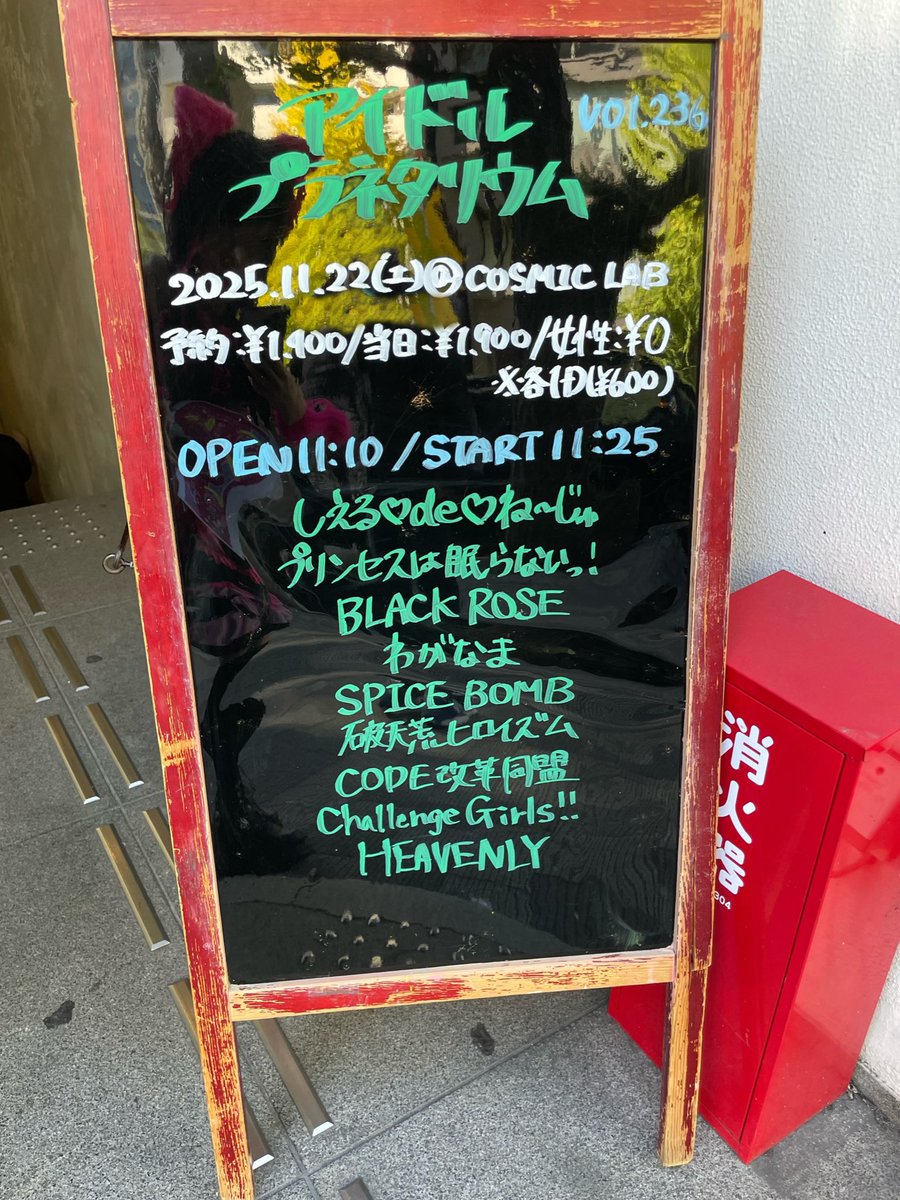 アイドル
プラネタリウム
VOL.236
2025.11.22(土)@COSMIC LAB
予約:¥1,400/当日:¥1,900/女性:¥0
※各1D(¥600)
OPEN11:10/START11:25
しえる♡de♡ね〜じゅ
プリンセスは眠らないっ!
BLACK ROSE
わがなま
SPICE BOMB
破天荒ヒロイズム
CODE改革同盟
Challenge Girls!!
HEAVENLY
消火器
304